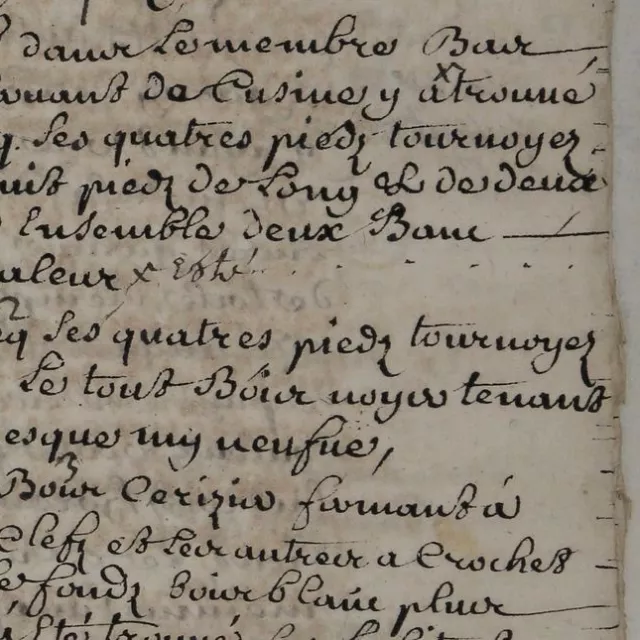 dans Le membre Bas
servant de Cusine y a trouué
ses quatres piedz tournoyez
huit piedz de Long & de deux
Ensemble deux Banc
valeur x Esté
ses quatres piedz tournoyez
Le tout Bois noyer tenant
presque my neufue,
Bois Cerizier fermant à
Clefz et Les autres a Crochet
fondz bois blanc plus